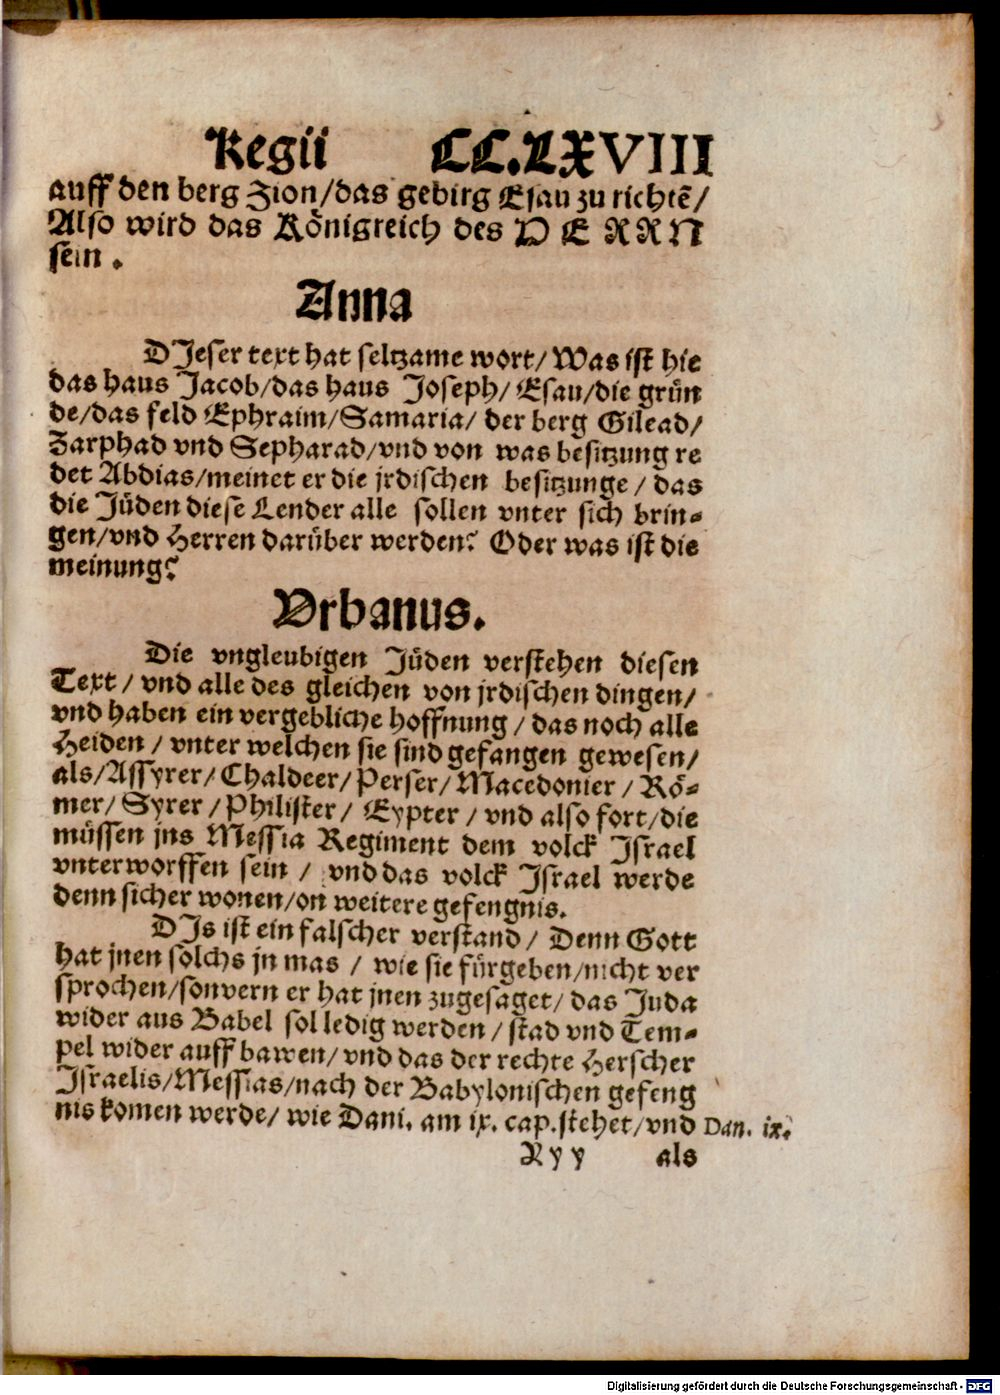 Regii CC.LXVIII
auff den berg Zion/das gebirg Esau zu richtē/
Also wird das Königreich des HERRN
sein.
Anna
DJeser text hat seltzame wort/Was ist hie
das haus Jacob/das haus Joseph/Esau/die grün
de/das feld Ephraim/Samaria/der berg Gilead/
Zarphad vnd Sepharad/vnd von was besitzung re
det Abdias/meinet er die jrdischen besitzunge/das
die Jüden diese Lender alle sollen vnter sich brin-
gen/vnd Herren darüber werden? Oder was ist die
meinung?
Vrbanus.
Die vngleubigen Jüden verstehen diesen
Text/vnd alle des gleichen von jrdischen dingen/
vnd haben ein vergebliche hoffnung/das noch alle
Heiden/vnter welchen sie sind gefangen gewesen/
als/Assyrer/Chaldeer/Perser/Macedonier/Rö-
mer/Syrer/Philister/Eypter/vnd also fort/die
müssen jns Messia Regiment dem volck Israel
vnterworffen sein/vnd das volck Israel werde
denn sicher wonen/on weitere gefengnis.
DJs ist ein falscher verstand/Denn Gott
hat jnen solchs jn mas/wie sie fürgeben/nicht ver
sprochen/sonvern er hat jnen zugesaget/das Juda
wider aus Babel sol ledig werden/stad vnd Tem-
pel wider auff bawen/vnd das der rechte Herscher
Israelis/Messias/nach der Babylonischen gefeng
nis komen werde/wie Dani. am ix. cap.stehet/vnd Dan. ix.
Ryy als
Digitalisierung gefördert durch die Deutsche Forschungsgemeinschaft - DFG